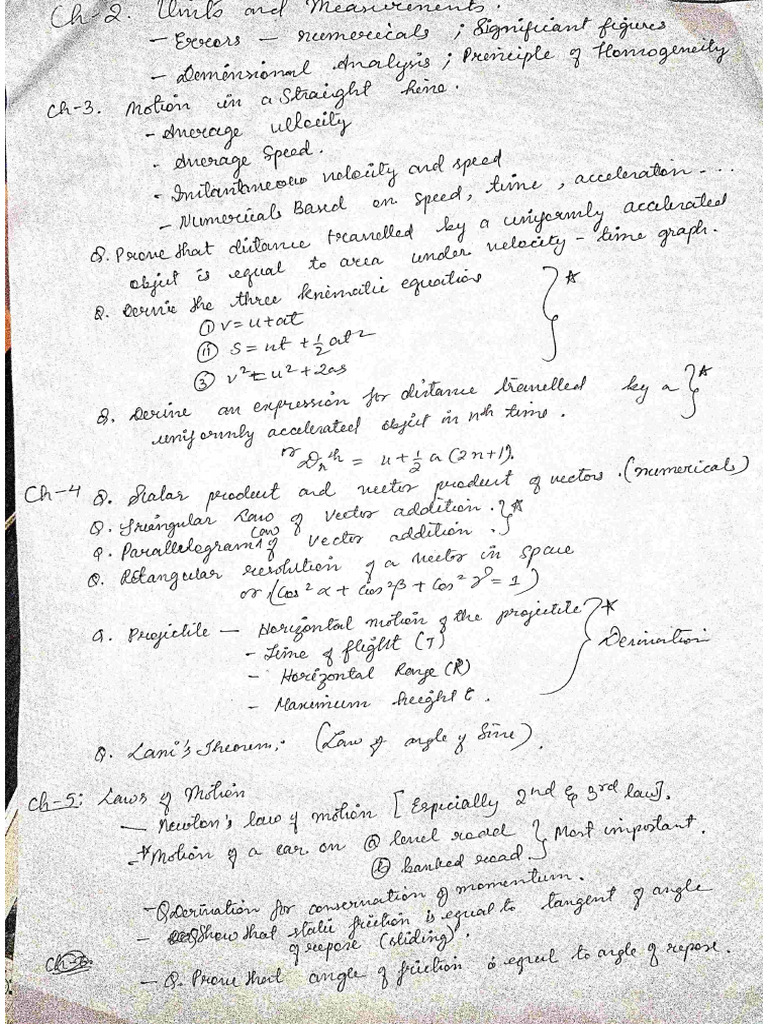 Ch-2. Units and Measurements.
- Errors - numericals ; Significant figures
- Dimensional Analysis ; Principle of Homogeneity
Ch-3. Motion in a Straight line.
- Average velocity
- Average Speed.
- Instantaneous velocity and speed
- Numericals Based on speed, time, acceleration - - -
Q. Prove that distance travelled by a uniformly accelerated
object is equal to area under velocity - time graph.
Q. Derive the three kinematic equations
① v = u + at
② S = ut + 1/2 at²
③ v² = u² + 2as
Q. Derive an expression for distance travelled by a
uniformly accelerated object in nth time.
or Dnth = u + 1/2 a (2n+1).
Ch-4 Q. Scalar product and vector product of vectors. (numericals)
Q. Triangular Law of Vector addition.
Q. Parallelogram Law of Vector addition.
Q. Retangular resolution of a vector in space
or (Cos² α + Cos² β + Cos² γ = 1)
Q. Projectile - Horizontal motion of the projectile
- Time of flight (T)
- Horizontal Range (R)
- Maximum height
Derivation
Q. Lami's Theorem. (Law of angle of Sine).
Ch-5: Laws of Motion
- Newton's law of motion [Especially 2nd & 3rd law].
- *Motion of a car on ⓐ level road
ⓑ banked road. Most important.
- Q. Derivation for conservation of momentum.
- Q. Show that static friction is equal to tangent of angle
of repose (sliding).
- Q. Prove that angle of friction is equal to angle of repose.